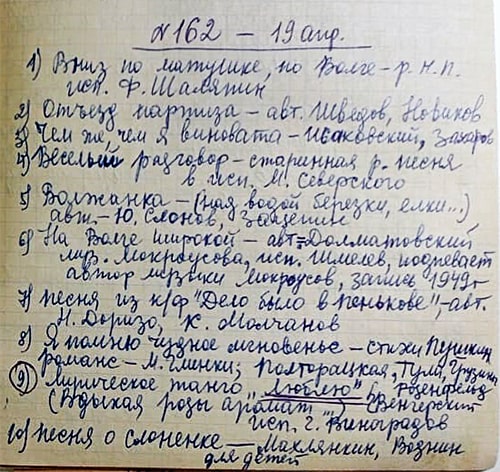 №162 – 19 апр.
1) Вниз по матушке, по Волге – р. н. п.
исп. Ф. Шаляпин
2) Отъезд партиза – авт. Шведов, Новиков
3) Чем же, чем я виновата – Исаковский, Захаров
4) Веселый разговор – старинная р. песня
в исп. М. Северского
5) Волжанка – (над водой березки, елки...)
авт. – Ю. Слонов,
6) На Волге широкой – авт. Долматовский
муз. Мокроусова, исп. Шмелев, подпевает
автор музыки Мокроусов, запись 1949 г.
7) песня из к/ф "Дело было в Пенькове", – авт.
Н. Доризо, К. Молчанов
8) Я помню чудное мгновенье – стихи Пушкин
Романс – М. Глинки;
9) Лирическое танго "Люблю" бр. Розенфельд
(Вдыхая розы аромат...) Венгерский
исп. г. Виноградов
10) песня о слоненке – Махлянкин,
для детей